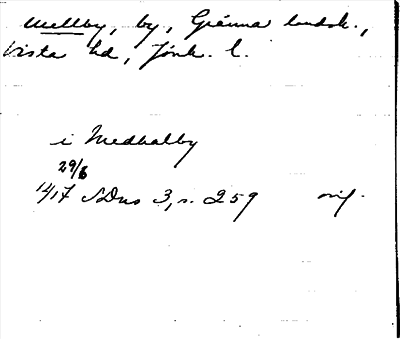 Mellby, by, Gränna landsk.,
Vista hd, Jönk. l.
i Medhalby
29/6
1417 SDns 3, s. 259 orig.